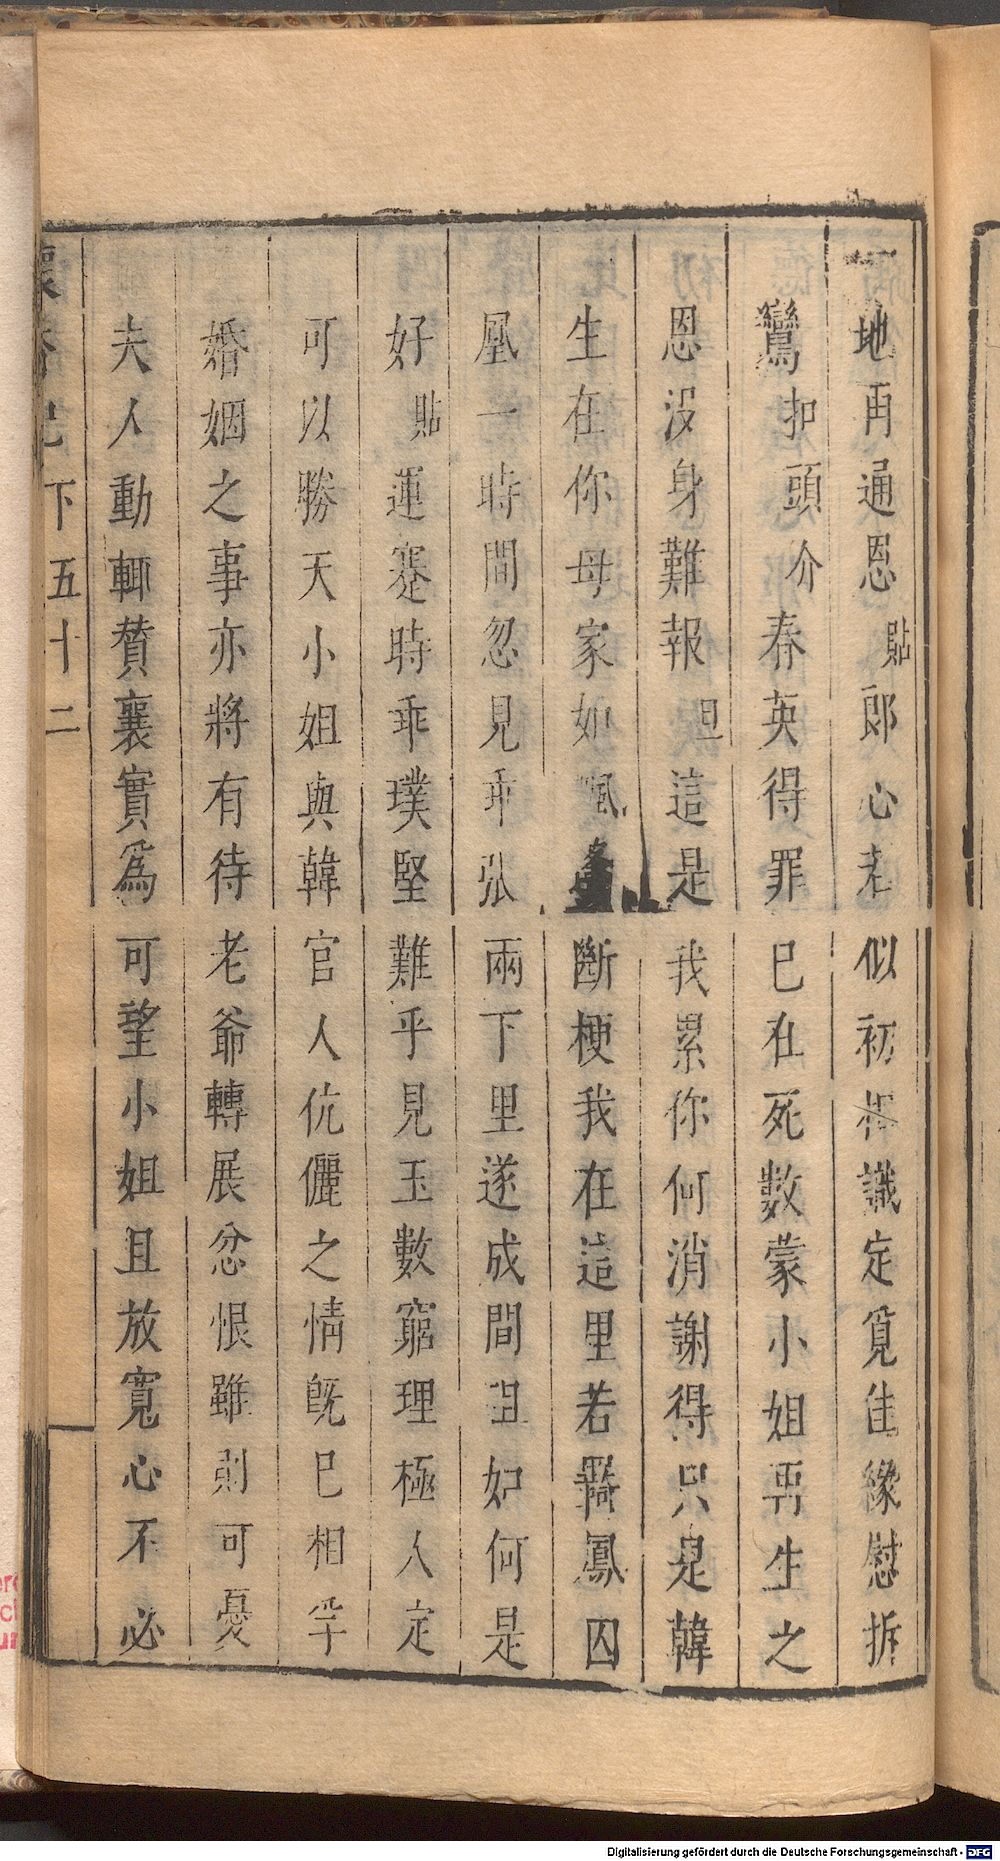 地再通恩貼郎心若似初相識定覓佳緣慰拆
鸞扣頭介春英得罪已在死數蒙小姐再生之
恩没身難報旦這是我累你何消謝得只是韓
生在你母家如斷梗我在這里若羇鳳囚
凰一時間忽見乖張兩下里遂成間阻如何是
好貼運蹇時乖璞堅難乎見玉數窮理極人定
可以勝天小姐與韓官人伉儷之情既已相孚
婚姻之事亦將有待老爺轉展忿恨雖則可憂
夫人動輒賛襄實爲可望小姐且放寬心不必
下五十二
Digitalisierung gefördert durch die Deutsche Forschungsgemeinschaft - DFG